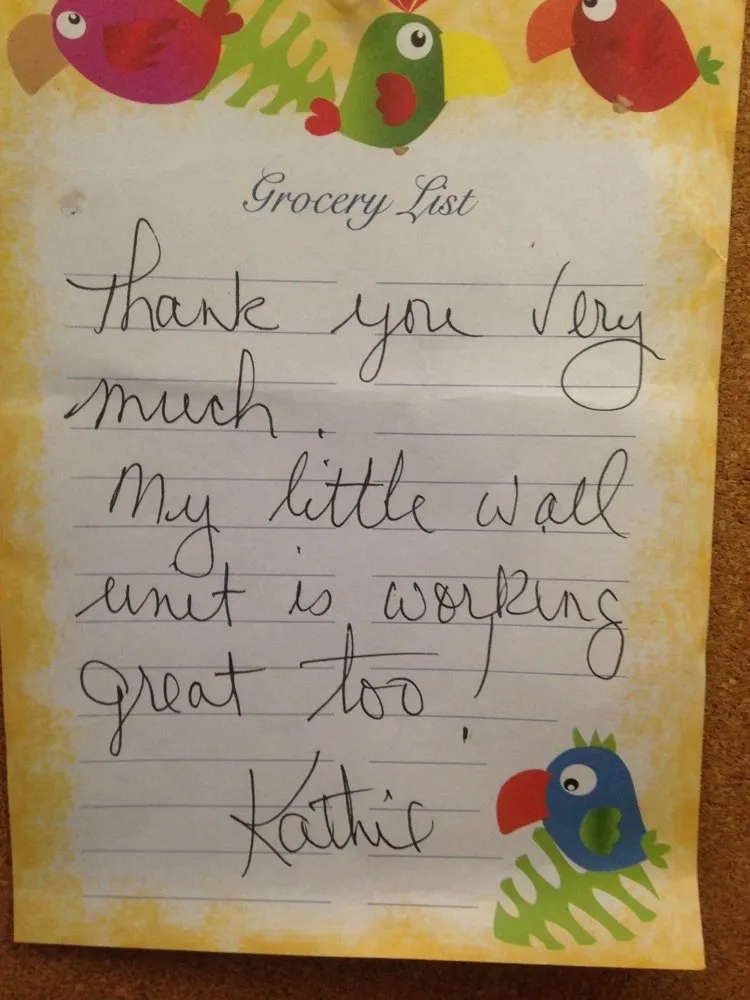 Grocery List
Thank you Very
much.
My little wall
unit is working
great too!
Kathie